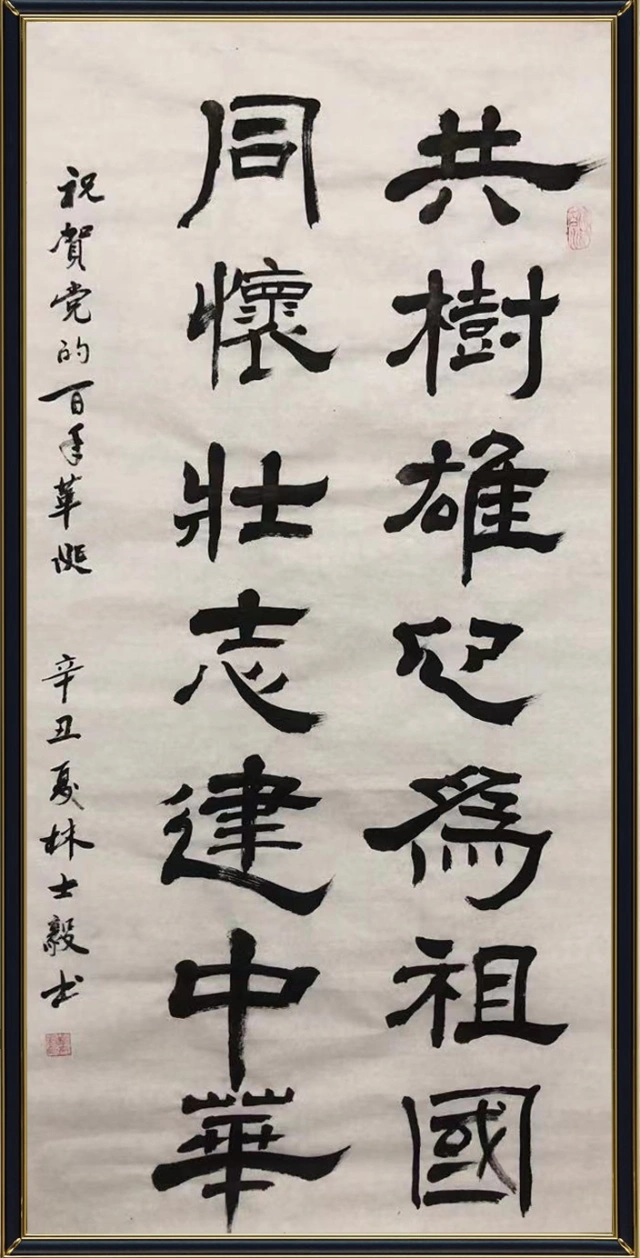 共樹雄心為祖國
同懷壯志建中華
祝賀党的百年華诞
辛丑夏林士毅书